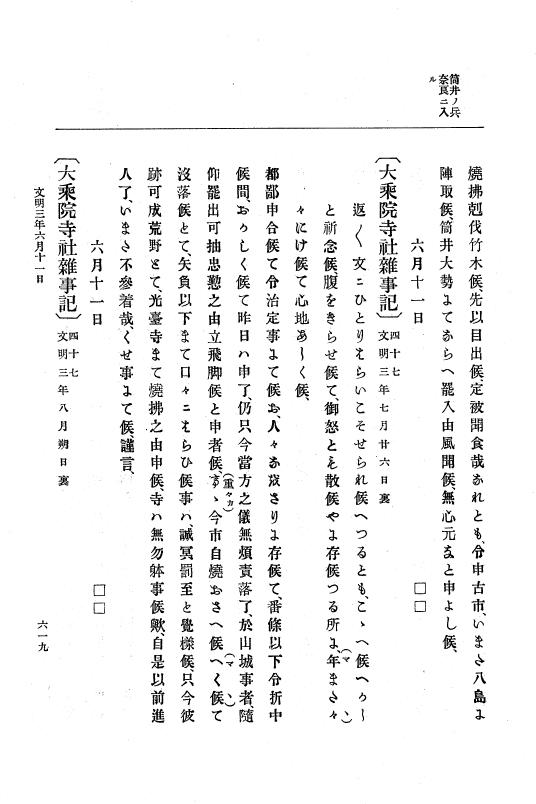 筒井ノ兵
奈良ニ入
ル
燒拂剋伐竹木候、先以目出候定被聞食哉あれとも、令申古市、いまた八島よ
陣取候、筒井大勢よてならへ罷入由風聞候、無心元なと申よし候、
六月十一日 □□
〔大乘院寺社雜事記〕四十七
文明三年七月廿六日裏
返〱文ニひとりわらいこそせられ候へつるとも、こゝへ候へ
と祈念候、腹をきらせ候て、御怒とを散候やよ存候つる所よ、年また々
々にけ候て心地あしく候、
都鄙申合候て令治定事よて候お、人々なほさりよ存候て、番條以下令折中
候間、おかしく候て昨日ハ申了、仍只今當方之儀無煩責落了、於山城事者、隨
仰罷出可抽忠懃之由立飛脚候と申者候、すゝ今市自燒おさへ候へく候て
(重々カ)
(マヽ)
(マヽ)
沒落候とて、矢負以下まて口々ニわらひ候事ハ、誠冥罰至と覺樣候、只今彼
跡可成荒野とて、光臺寺まて燒拂之由申候、寺ハ無勿躰事候歟、自是以前進
人了、いまた不參着哉、くせ事よて候、謹言、
六月十一日 □□
〔大乘院寺社雜事記〕四十七
文明三年八月朔日裏
文明三年六月十一日
六一九